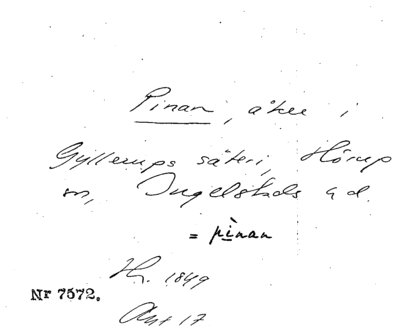 Pinan, åker i
Gyllerups säteri, Hörup
sn, Ingelstads hd.
= pìnan
Hr. 1849
Nr 7572.
Akt 17